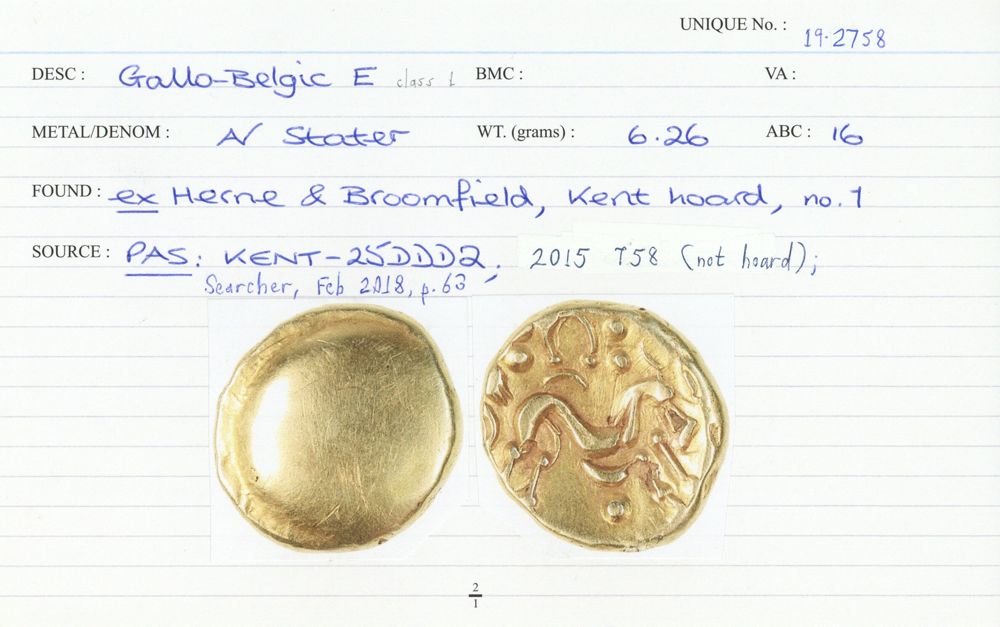 UNIQUE No. : 19.2758
DESC : Gallo-Belgic E class 1 BMC : VA :
METAL/DENOM : AV Stater WT. (grams) : 6.26 ABC : 16
FOUND : ex Herne & Broomfield, Kent hoard, no. 1
SOURCE : PAS: KENT-25DDD2, 2015 T58 (not hoard);
Searcher, Feb 2018, p.63
2
1